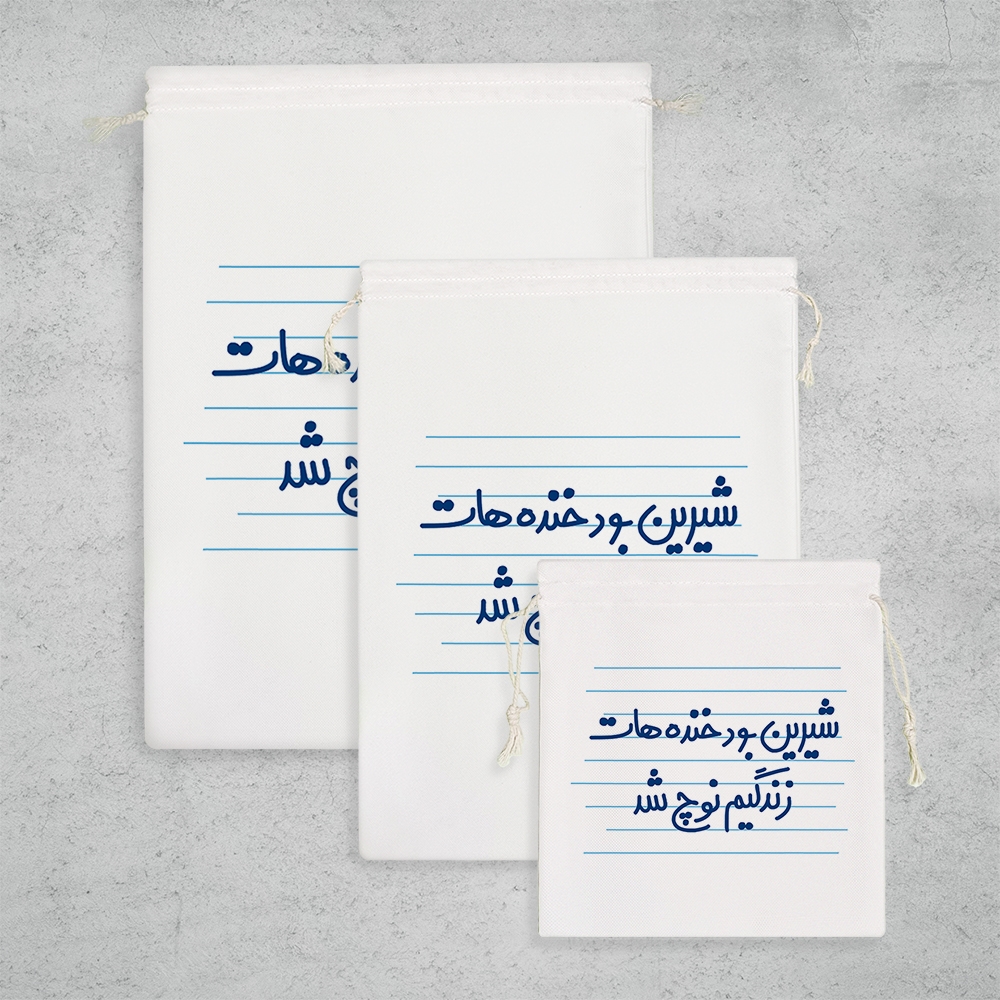 هات
شد
شیرین بود خنده هات
شد
شیرین بود خنده هات
زندگیم نوچ شد